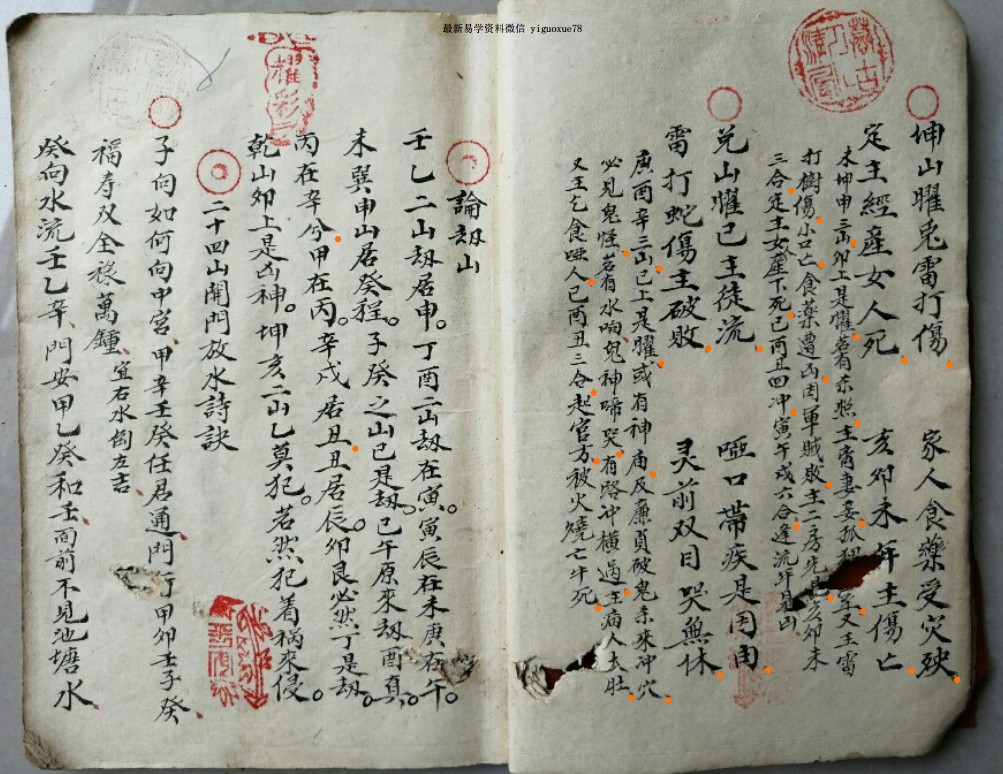 最新易学资料微信 yiguoxue78
坤山曜兎雷打傷 家人食藥受灾殃
定主經産女人死 亥卯未年主傷亡
未坤申三山卯上是曜若有条照主商妻妾孤
打樹傷小口亡食藥遭凶因軍賊敗主二房先見亥卯未
三合定主女産下死已酉丑四冲寅午戌六合逢流年見凶
兌山曜已主徒流 啞口帶疾是因
雷打蛇傷主破敗 灵前双目哭無休
庚酉辛三山已上是曜或有神庙及廉貞破鬼条來冲穴
必見鬼怪若有水响鬼神啼哭有路冲横過主病人大肚
又主乞食啞人已酉丑三合起官方被火燒亡牛死
論刼山
壬乙二山刼居申丁酉二山刼在寅寅辰在未庚在午
未巽申山居癸程子癸之山已是刼已午原來刼酉真
丙在辛分甲在丙辛戌居丑丑居辰卯艮必然丁是刼
乾山卯上是凶神坤亥二山乙莫犯若然犯着禍來侵
二十四山開門放水詩訣
子向如何向中宫甲辛壬癸任君通門行甲卯壬子癸
福寿双全祿萬鍾宜右水倒左吉
癸向水流壬乙辛門安甲乙癸和壬面前不見池塘水